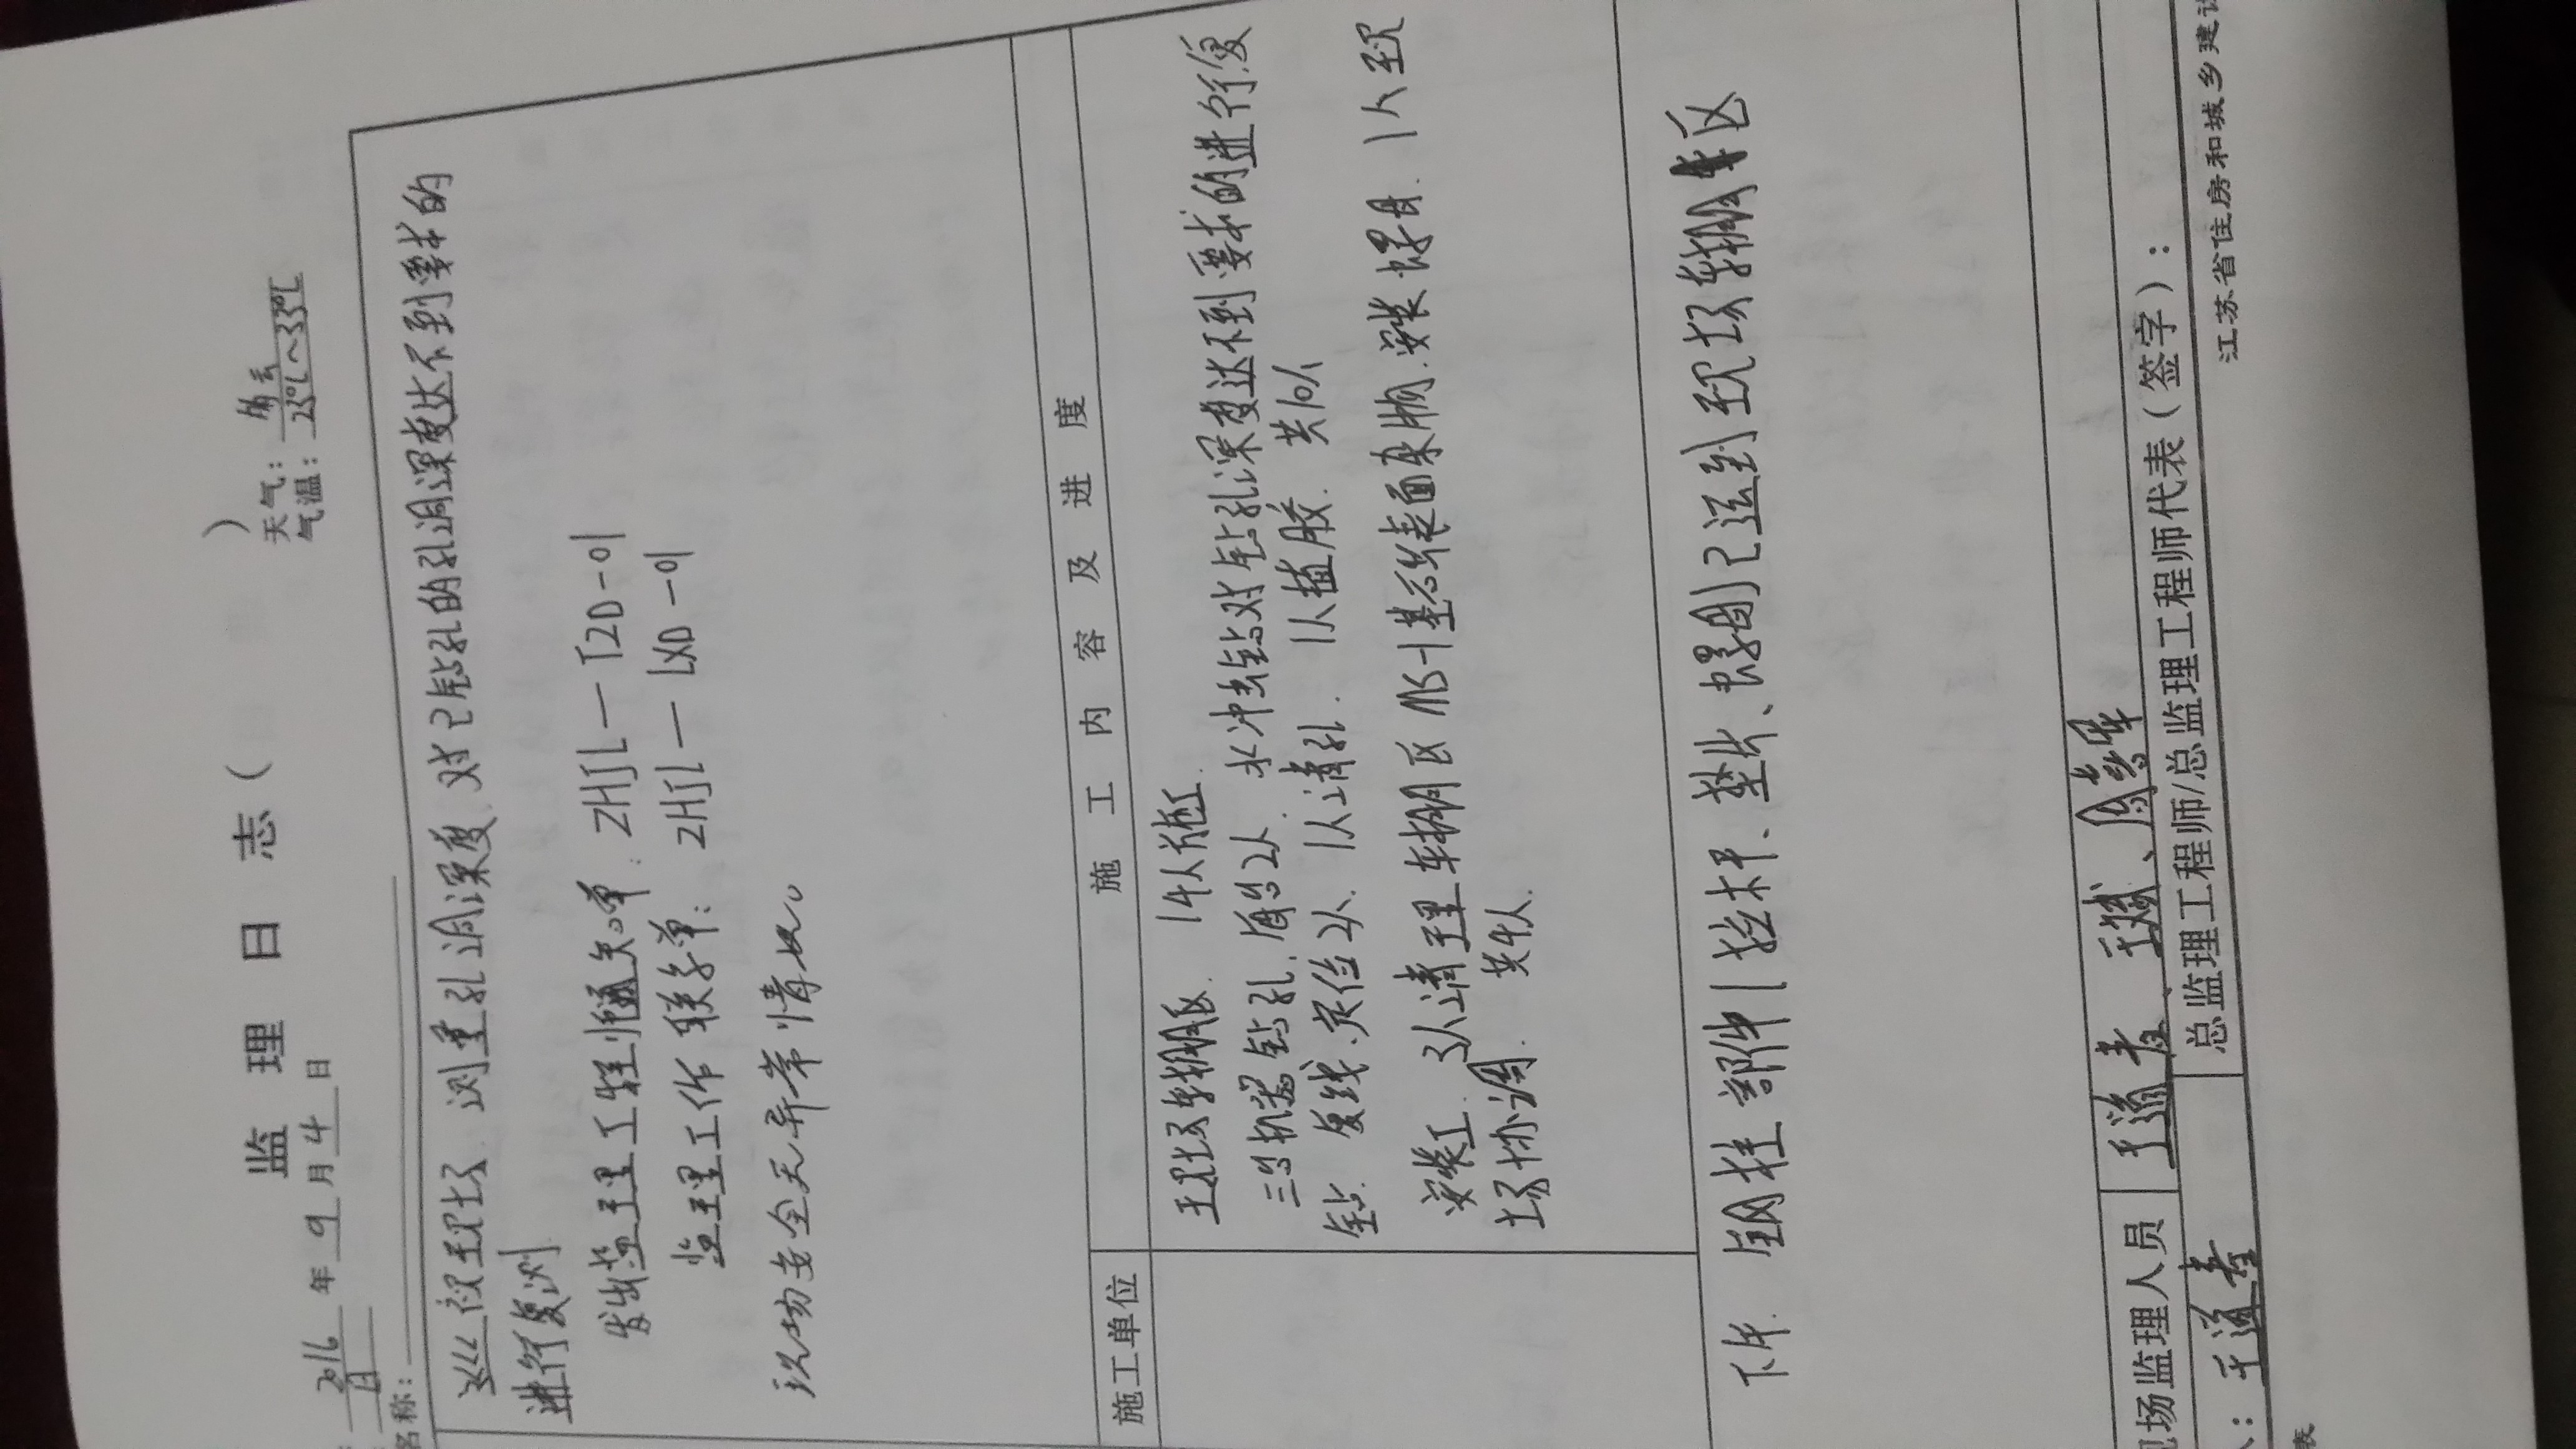 监 理 日 志 (          )
2016 年 9 月 4 日
天气: 多云
日
气温: 25℃~33℃
名称:
巡视现场. 测量孔洞深度. 对已钻孔的孔洞深度达不到要求的
进行复测
发出监理工程师通知单: ZHJL—TZD-01
监理工作联系单: ZHJL—LXD-01
现场安全无异常情况。
施工单位
施 工 内 容 及 进 度
现场车棚区. 14人施工.
三台机器钻孔. 每台2人. 水冲击钻对钻孔深度达不到要求的进行复
钻. 复线、定位2人. 1人清孔. 1人植胶. 共10人
安装工. 3人清理车棚区MS-1基础表面 安装螺母. 1人现
场协调. 共4人.
下午. 钢柱部件 拉杆、垫片、螺 已运到现场车棚 区
现场监理人员
王道春、王斌、
总监理工程师/总监理工程师代表(签字):
人: 王道春
江苏省住房和城乡建设
表